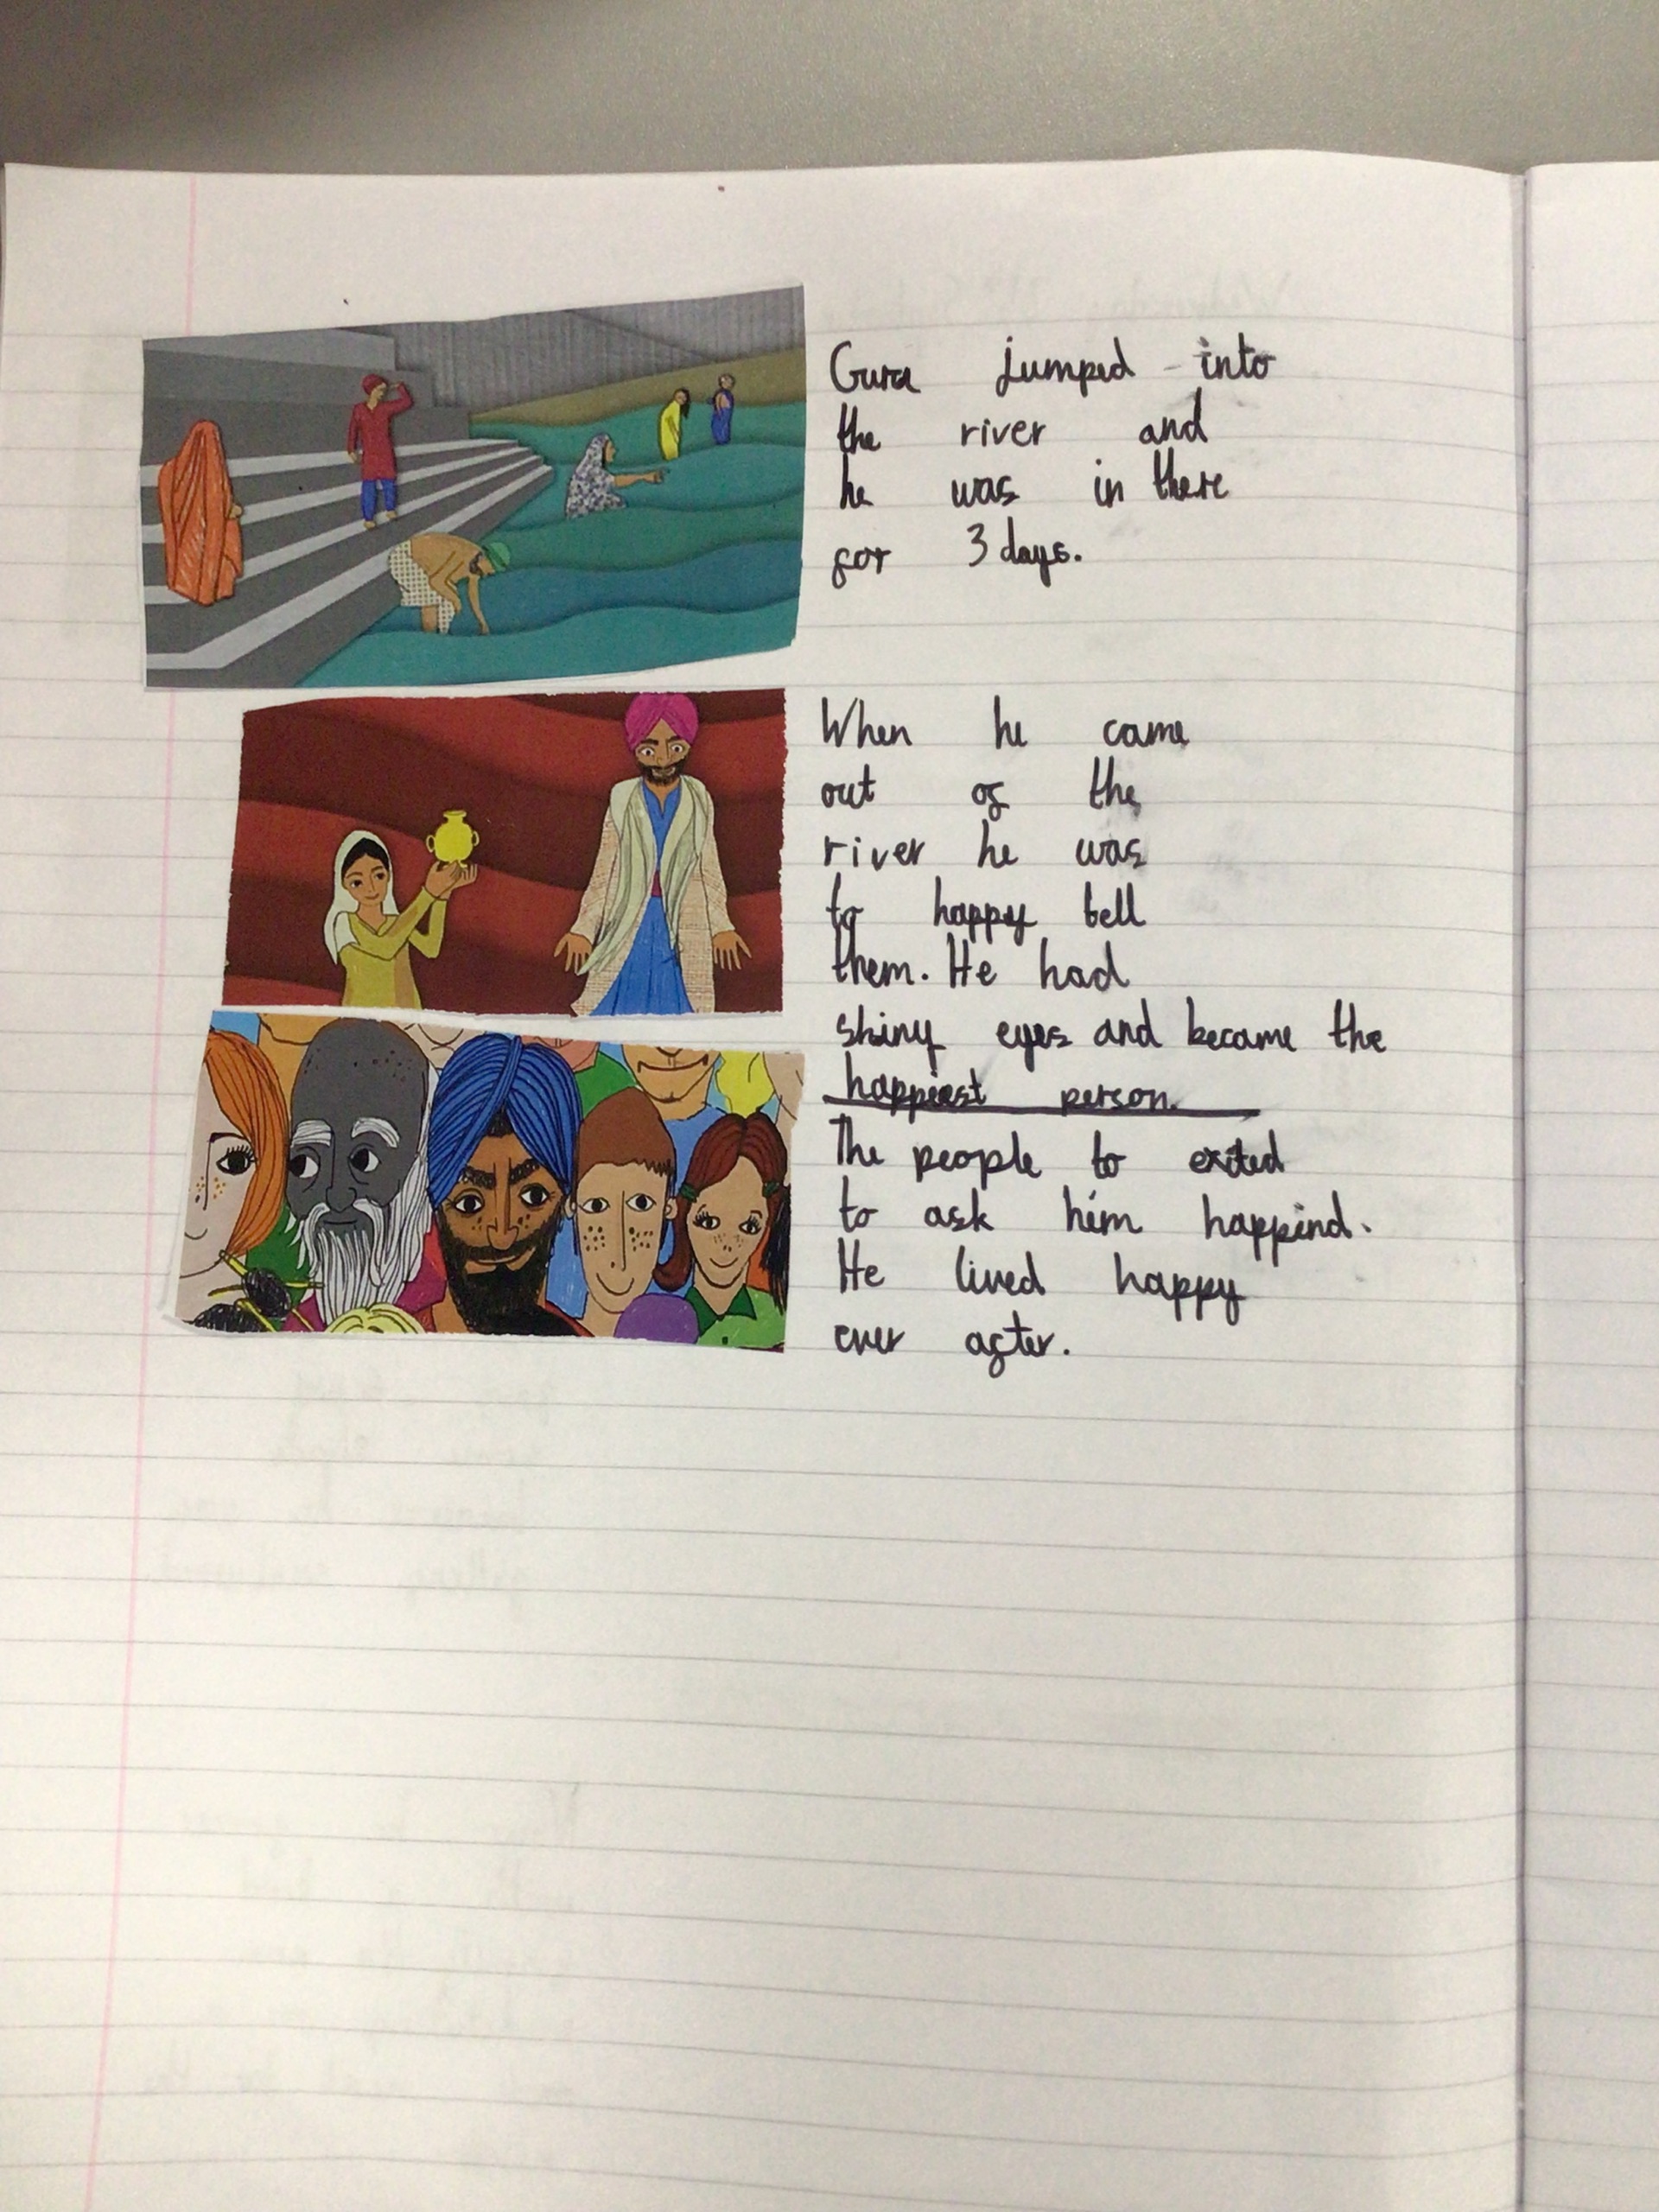 Guru jumped into
the river and
he was in there
for 3 days.
When he came
out of the
river he was
to happy tell
them. He had
shiny eyes and became the
happiest person.
The people to exited
to ask him happind.
He lived happy
ever after.